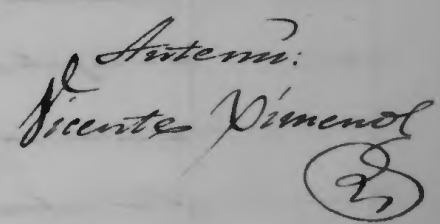 Ante mi:
Vicente Ximenol